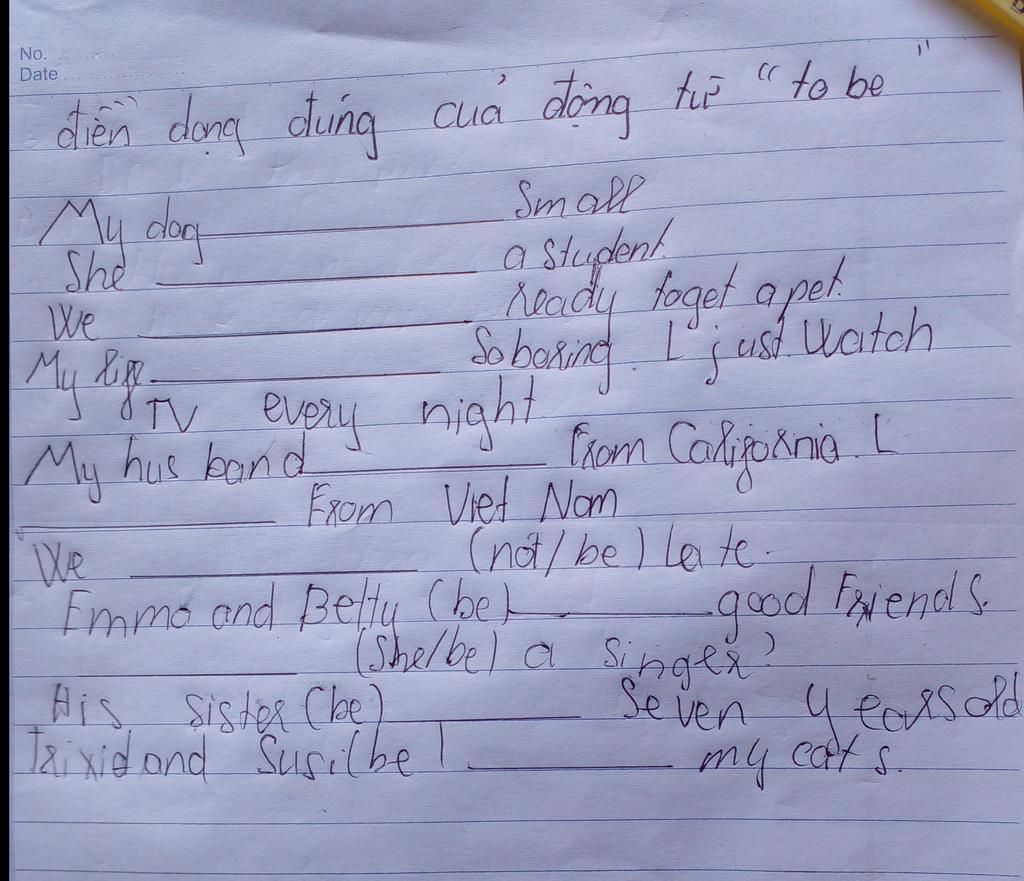 No.
Date
điền dạng đúng của động từ "to be"
My dog ___ Small
She ___ a student.
We ___ ready toget a pet.
My life ___ So boring. I just Watch
TV every night
My hus band ___ From California. I
___ From Viet Nam
We ___ (not/be) late.
Emma and Betty (be) ___ good Friends.
___ (She/be) a singer?
His sister (be) ___ Seven years old
Trixid and Susi (be) ___ my cats.